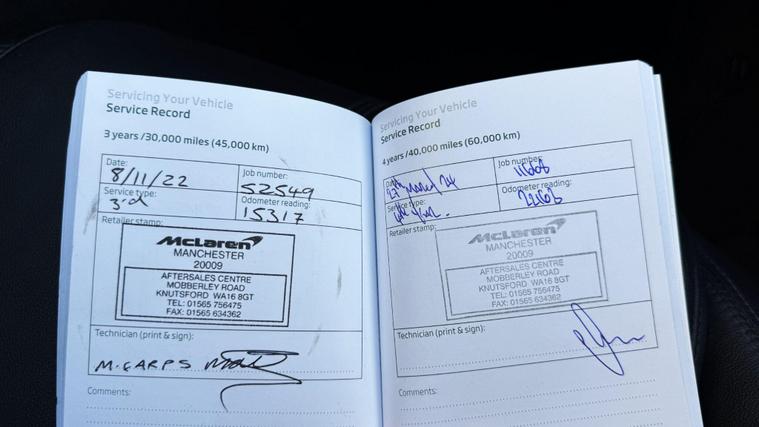 Servicing Your Vehicle
Service Record
3 years /30,000 miles (45,000 km)
Date: 8/11/22
Job number: 52549
Service type: 3rd
Odometer reading: 15317
Retailer stamp:
McLaren
MANCHESTER
20009
AFTERSALES CENTRE
MOBBERLEY ROAD
KNUTSFORD WA16 8GT
TEL: 01565 756475
FAX: 01565 634362
Technician (print & sign):
M. EARPS
Comments:
Servicing Your Vehicle
Service Record
4 years /40,000 miles (60,000 km)
Date: March 24
Job number:
Service type: 4th
Odometer reading:
Retailer stamp:
McLaren
MANCHESTER
20009
AFTERSALES CENTRE
MOBBERLEY ROAD
KNUTSFORD WA16 8GT
TEL: 01565 756475
FAX: 01565 634362
Technician (print & sign):
Comments: